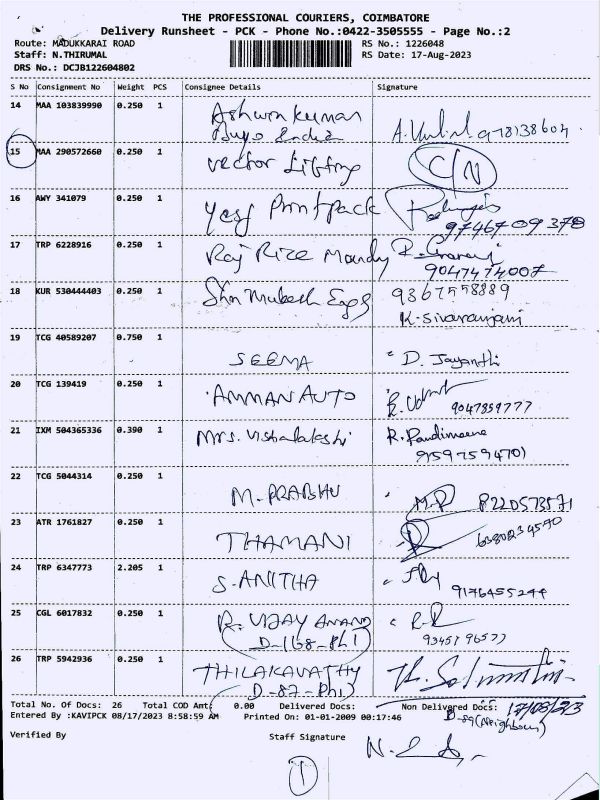 THE PROFESSIONAL COURIERS, COIMBATORE
Delivery Runsheet - PCK - Phone No.:0422-3505555 - Page No.:2
Route: MADUKKARAI ROAD RS No.: 1226048
Staff: N.THIRUMAL RS Date: 17-Aug-2023
DRS No.: DCJB122604802
S No Consignment No Weight PCS Consignee Details Signature
14 MAA 103839990 0.250 1 Ashwin kumar
15 MAA 290572660 0.250 1 vector Lifting C/N
16 AWY 341079 0.250 1 Yess Printpack
9746709378
17 TRP 6228916 0.250 1 Raj Rice Mandy
9047474007
18 KUR 530444403 0.250 1 Shri Mukesh Eggs 9367558889
K-Sivaranjani
19 TCG 40589207 0.750 1 SEEMA D. Jayanthi
20 TCG 139419 0.250 1 AMMAN AUTO 9047859777
21 IXM 504365336 0.390 1 Mrs. Vishalakshi
22 TCG 5044314 0.250 1 M. PRABHU M.P
23 ATR 1761827 0.250 1 THAMANI 6380234590
24 TRP 6347773 2.205 1 S. ANITHA 9176455244
25 CGL 6017832 0.250 1 R. VIJAY ANAND R.R
D-168-Ph1
26 TRP 5942936 0.250 1 THILAKAVATHY
D-87-Ph1
Total No. Of Docs: 26 Total COD Amt: 0.00 Delivered Docs: Non Delivered Docs: 17/08/23
Entered By :KAVIPCK 08/17/2023 8:58:59 AM Printed On: 01-01-2009 00:17:46 D-89(Neighbour)
Verified By Staff Signature
1